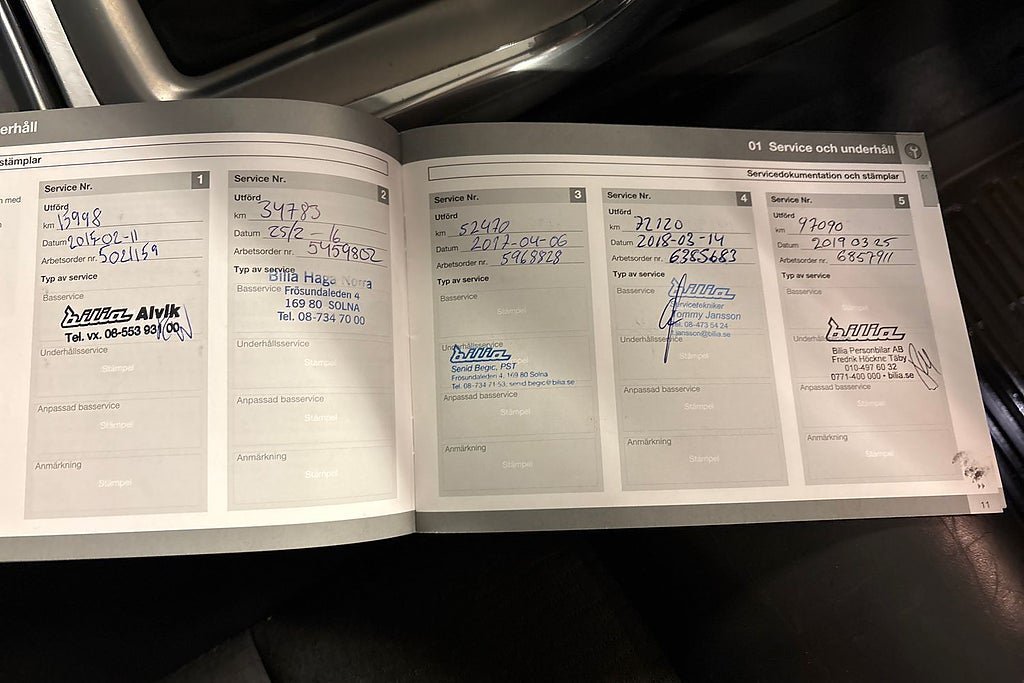 erhåll
stämplar
n med
Service Nr. 1
Utförd
km 13998
Datum 2015-02-11
Arbetsorder nr. 5021159
Typ av service
Basservice
bilia Alvik
Tel. vx. 08-553 931 00
Underhållsservice
Stämpel
Anpassad basservice
Stämpel
Anmärkning
Stämpel
Service Nr. 2
Utförd
km 34783
Datum 25/2 - 16
Arbetsorder nr. 5459802
Typ av service
Bilia Haga Norra
Basservice
Frösundaleden 4
169 80 SOLNA
Tel. 08-734 70 00
Underhållsservice
Stämpel
Anpassad basservice
Stämpel
Anmärkning
Stämpel
01 Service och underhåll
Servicedokumentation och stämplar
01
Service Nr. 3
Utförd
km 52470
Datum 2017-04-06
Arbetsorder nr. 5968828
Typ av service
Basservice
Stämpel
Underhållsservice
bilia
Senid Begic, PST
Frösundaleden 4, 169 80 Solna
Tel. 08-734 71 53, senid.begic@bilia.se
Anpassad basservice
Stämpel
Anmärkning
Stämpel
Service Nr. 4
Utförd
km 72120
Datum 2018-03-14
Arbetsorder nr. 6385683
Typ av service
Basservice
bilia
Servicetekniker
Tommy Jansson
Tel. 08-473 54 24
t.jansson@bilia.se
Underhållsservice
Stämpel
Anpassad basservice
Stämpel
Anmärkning
Stämpel
Service Nr. 5
Utförd
km 97090
Datum 2019 03 25
Arbetsorder nr. 6857911
Typ av service
Basservice
Stämpel
bilia
Underhållsservice
Bilia Personbilar AB
Fredrik Höckne Täby
010-497 60 32
0771-400 000 • bilia.se
Anpassad basservice
Stämpel
Anmärkning
Stämpel
11